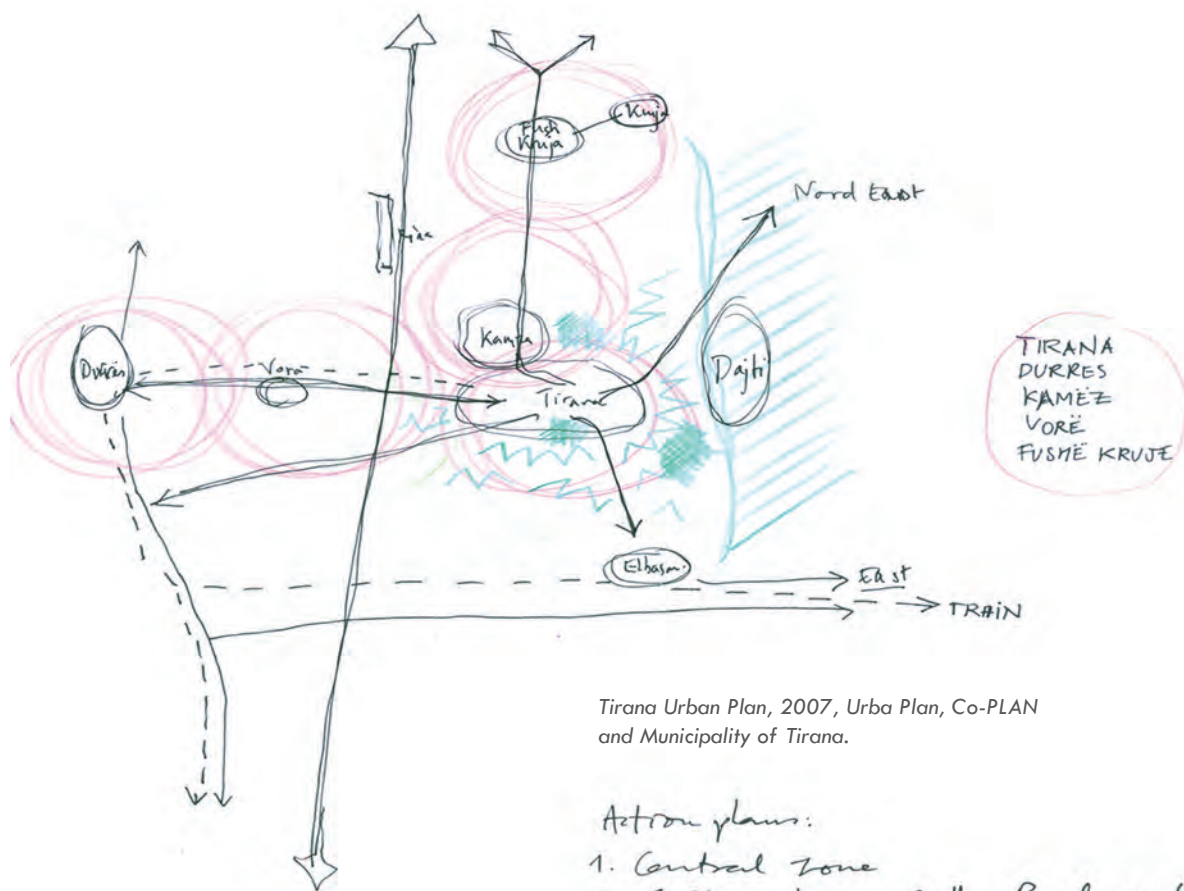 Fush
Kruja
Kruja
Nord East
Rinas
Kamza
Durrës
Vora
Tirana
Dajti
TIRANA
DURRES
KAMËZ
VORË
FUSHË KRUJE
Elbasan
East
TRAIN
Tirana Urban Plan, 2007, Urba Plan, Co-PLAN
and Municipality of Tirana.
Action plans:
1. Central zone